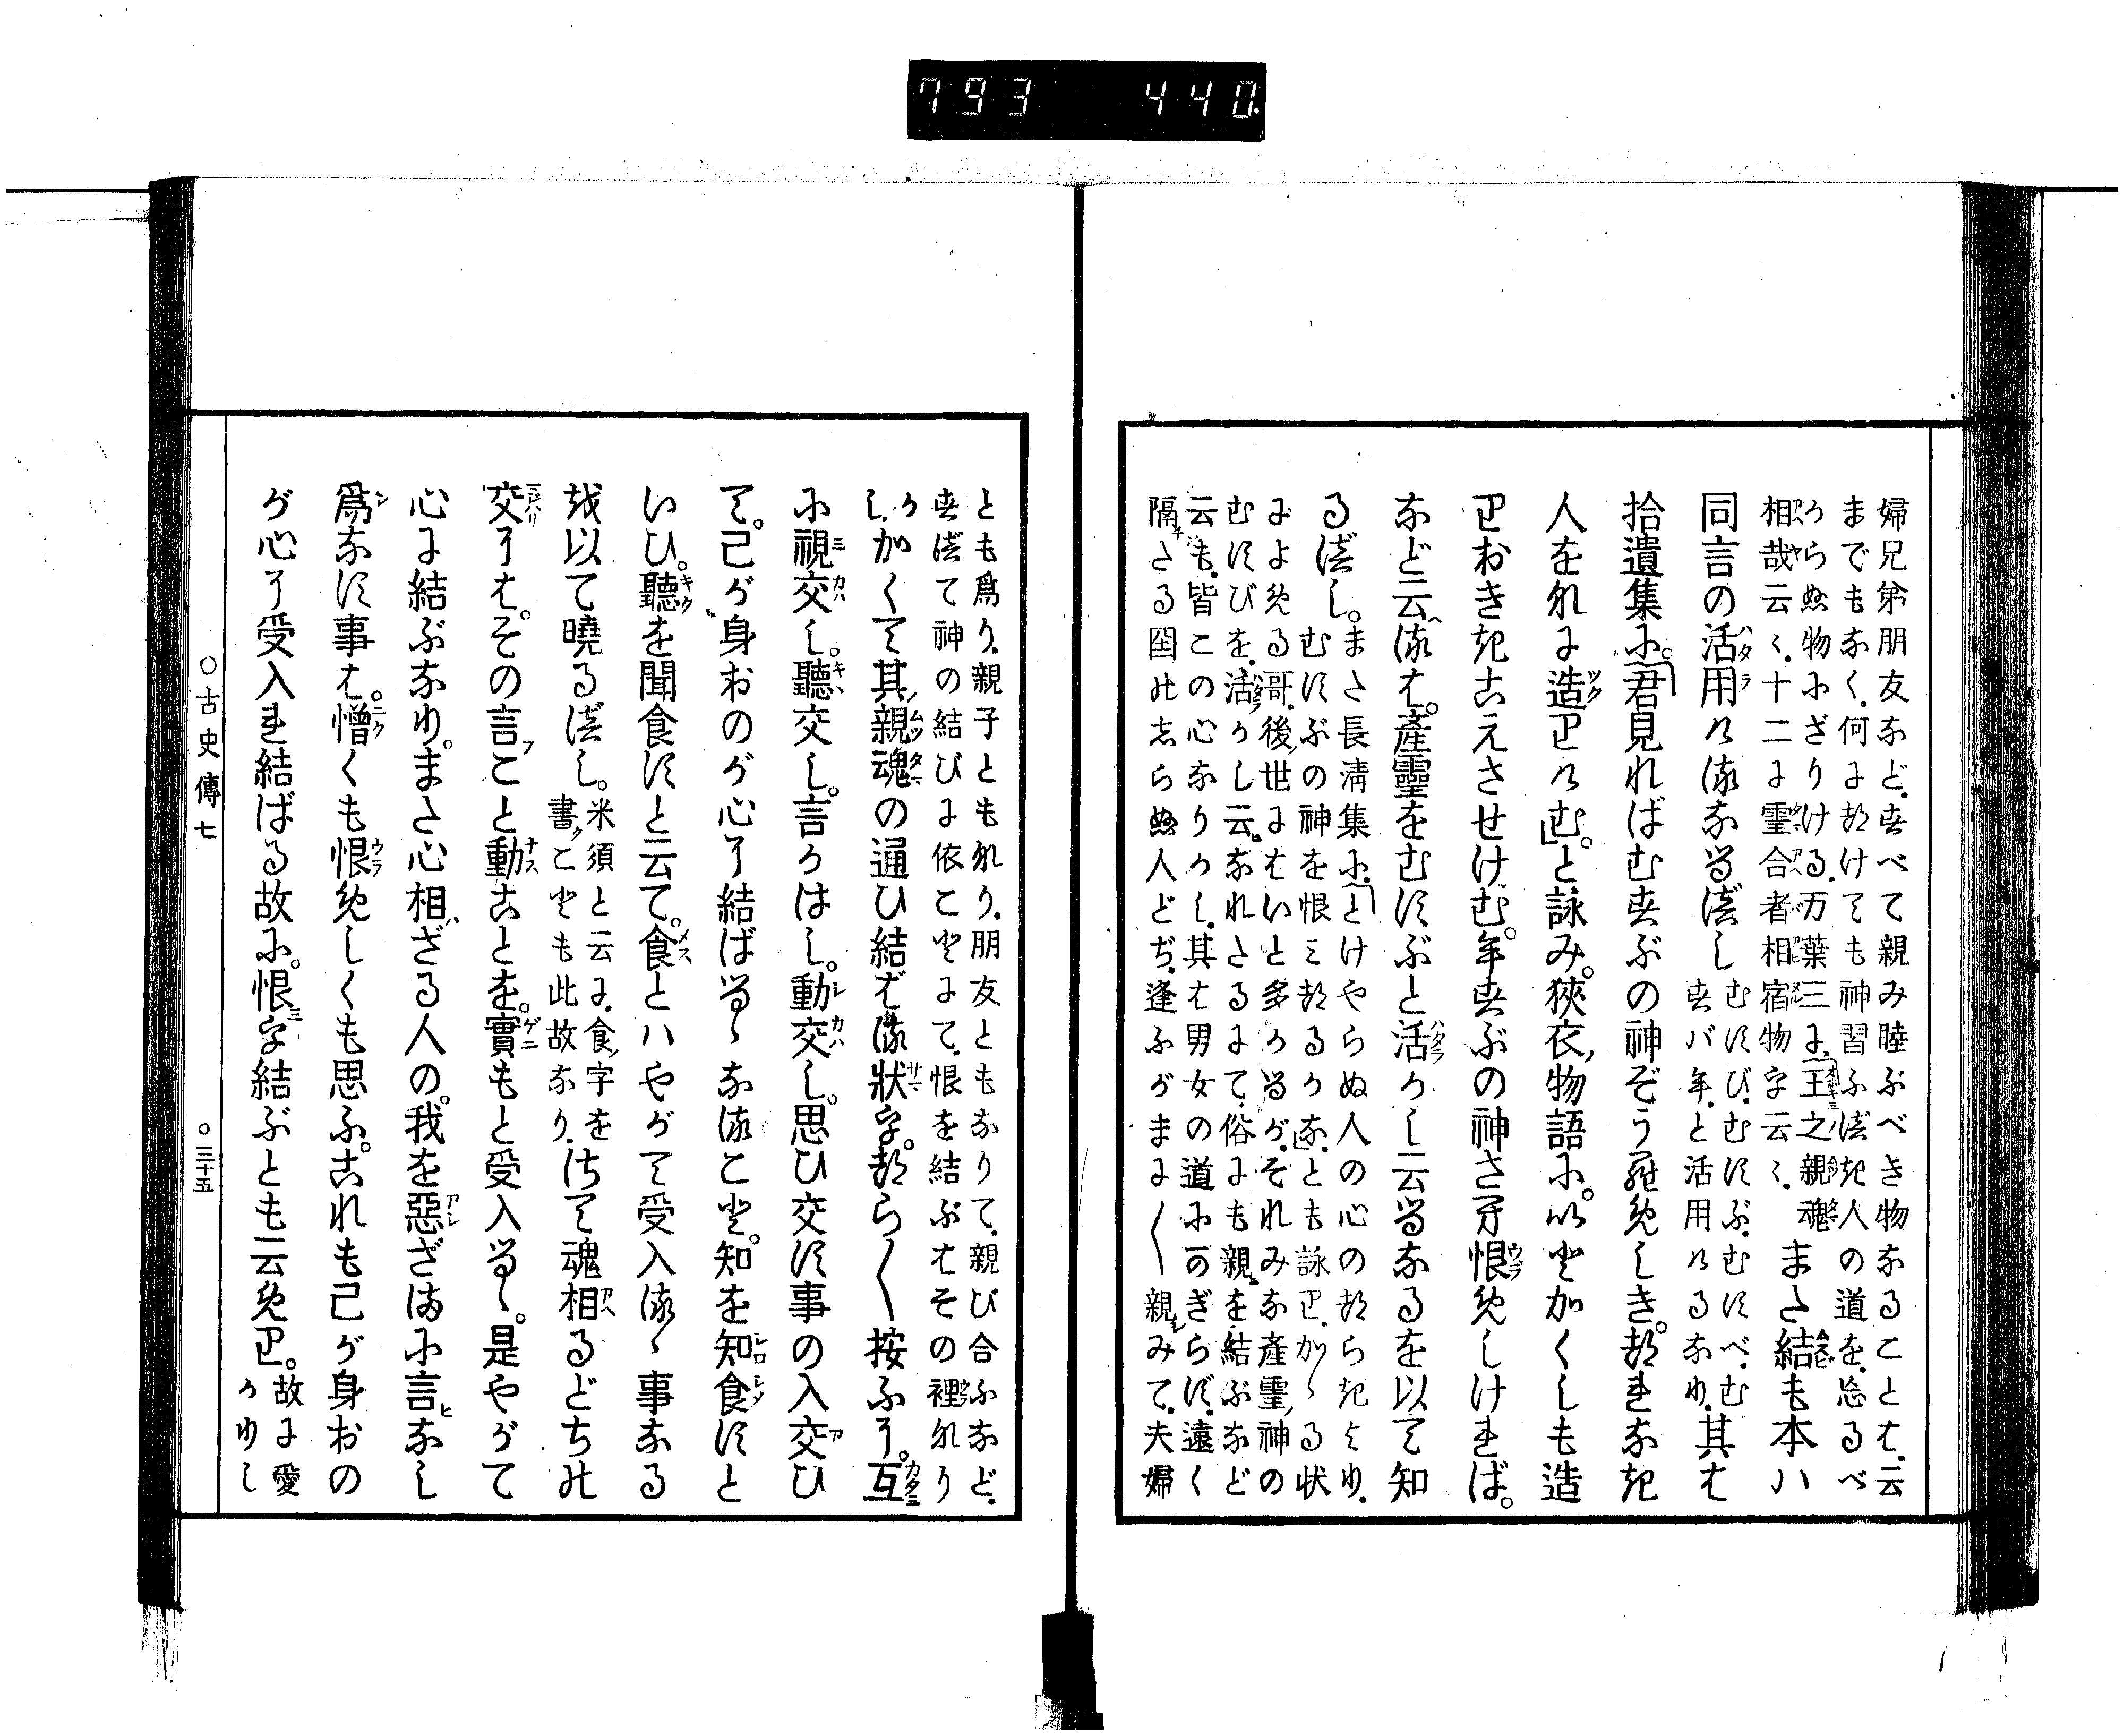 793 440
婦兄弟朋友など、すべて親み睦ぶべき物なることは、云
までもなく、何に就けても神習ふ法き人の道を、忘るべ
からぬ物にざりける、万葉三に、「王之親魂
相哉云々、十二に靈合者相宿物字云々、
また結も本ハ
同言の活用ける なるべし
むすび、むすぶ、むすべ、む
すバ年、と活用けるなり、
其は
拾遺集に。「君見ればむすぶの神ぞうらめしき。つれなき
人をなに造りけむ」。と詠み。狹衣物語に。いとかくしも造
りおききこえさせけむ。年すぶの神さへ恨めしければ。
など云るは。產靈をむすぶと活かし云るなるを以て知
るべし。
また長淸集に、「とけやらぬ人の心のつらきより、
むすぶの神を恨みつるかな」、とも詠り、かゝる状
によめる哥、後世にはいと多かるが、それみな產靈神の
むすびを、活かし云なれたるにて、俗にも親を結ぶなど
云も、皆この心なりかし、其は男女の道に可ぎらず、遠く
隔さる国のしらぬ人どち、逢ふがまに〱親みて、夫婦
とも爲り、親子ともなり、朋友ともなりて、親び合ふなど、
すべて神の結びに依ことにて、恨を結ぶはその裡なり
かし、
かくて其親魂の通ひ結ばる狀字。つら〱按ふに。互
に視交し。聽交し。言かはし。動交し。思ひ交す事の入交ひ
て。己が身おのが心に結ばるゝなること。知を知食すと
いひ。聽を聞食すと云て。食とハやがて受入るゝ事なる
を以て曉るべし。
米須と云に、食字を
書ことも此故なり、
さて魂相るどちの
交には。その言こと動ことを。實もと受入るゝ。是やがて
心に結ぶなり。また心相ざる人の。我を惡ざまに言なし
爲なす事は。憎くも恨めしくも思ふ。これも己が身おの
が心に受入れ結ばる故に。恨字結ぶとも云めり。
故に愛
かりし
○古史傳七
○三十五